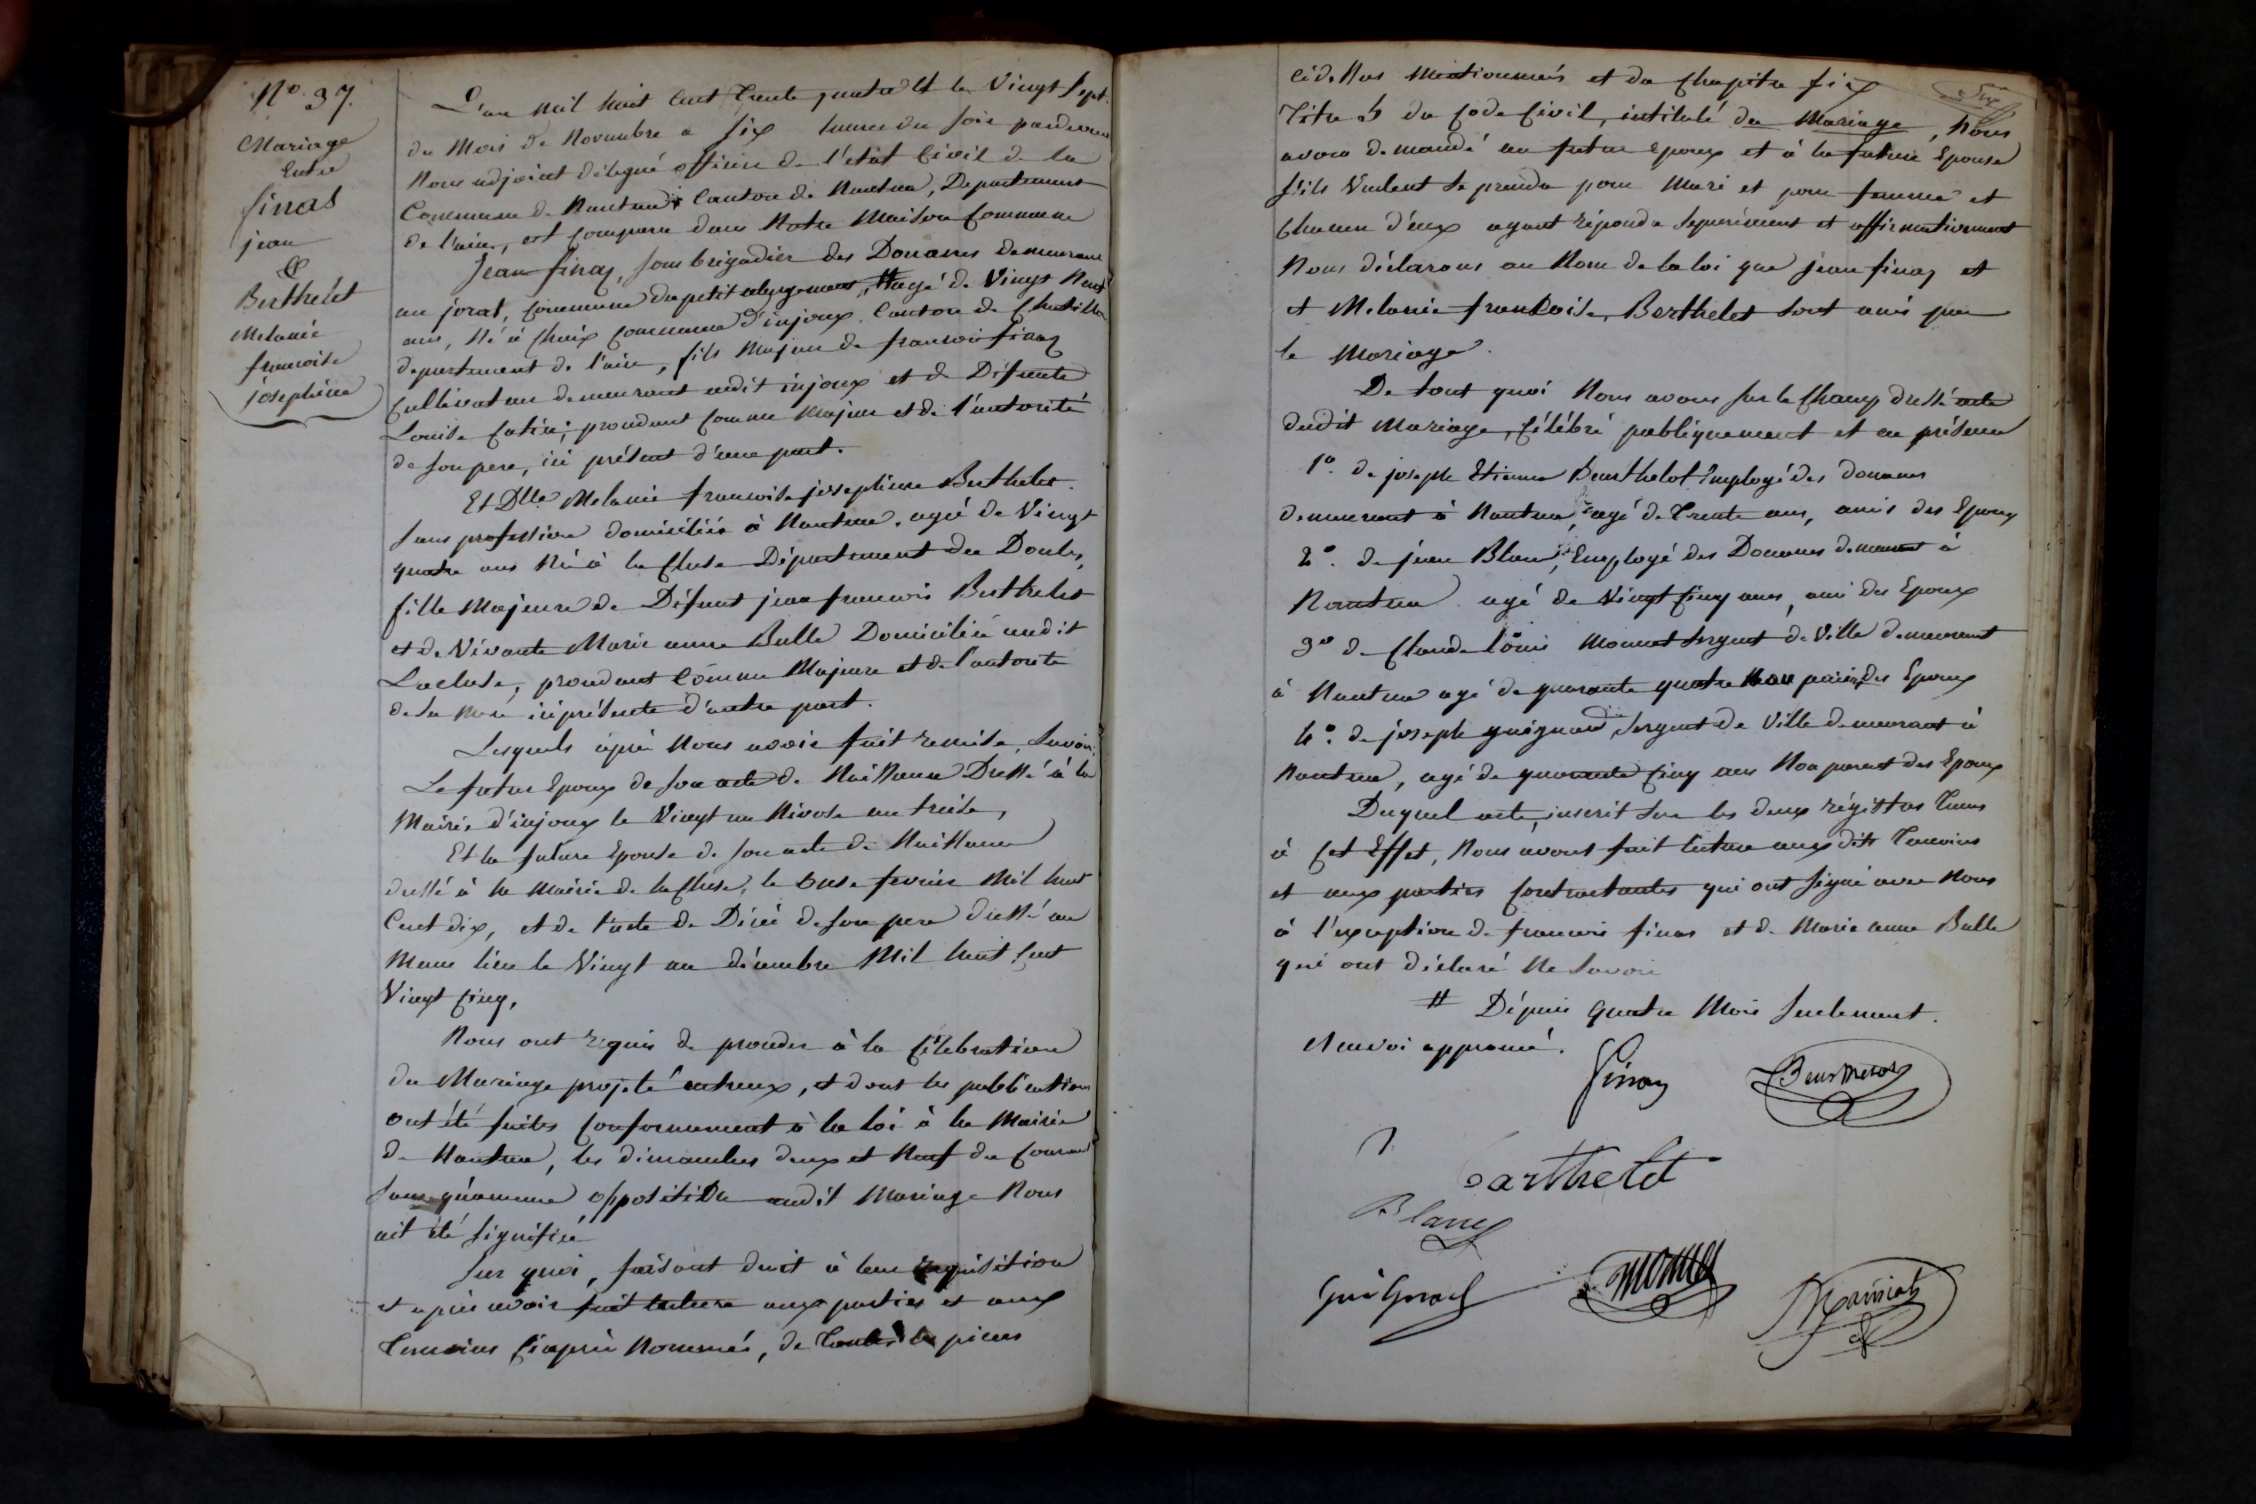 N° 37.
Mariage
Entre
finas
jean
&
Berthelet
Melanie
francoise
josephine
L'an mil huit Cent Trente quatre et le Vingt Sept
du Mois de Novembre a Six heures du soir pardevant
Nous adjoint délegué officier de l'etat Civil de la
Commune de Nantua Canton de Nantua, Departement
de l'ain, est comparu dans Notre Maison Commune
Jean finaz, sous brigadier des Douanes demeurant
au jorat, commune du petit abergement, # agé de Vingt Neuf
ans, Né à Chaix commune d'injoux Canton de Chatillon
departement de l'ain, fils Majeur de francois finaz
cultivateur demeurant audit injoux et de Défunte
Louise Catin; procédant comme Majeur et de l'autorité
de son pere, ici présent d'une part.
Et Dlle Melanie francoise josephine Berthelet
sans profession domiciliée à Nantua, agée de Vingt
quatre ans Née à la Cluse Département du Doubs,
fille Majeure de Défunt jean francois Berthelet
et de Vivante Marie anne Bulle Domiciliée audit
Lacluse, procédant Comme Majeure et de l'autorité
de sa Mere ici présente d'autre part.
Lesquels après Nous avoir fait remise, Savoir;
Le futur Epoux de son acte de Naissance Dressé à la
Mairie d'injoux le Vingt un Nivose an treize,
Et la future Epouse de son acte de Naissance
dressé à la Mairie de la Cluse, le onze fevrier Mil huit
Cent dix, et de l'acte de Décès de son pere dressé au
Meme lieu le Vingt un décembre Mil huit Cent
Vingt Cinq,
Nous ont requis de procéder à la Célébration
du Mariage projeté entreux, et dont les publications
ont été faites Conformement à la loi à la Mairie
de Nantua, les dimanches deux et Neuf du Courant
sans qu'aucune opposition audit Mariage Nous
ait été signifiée
Sur quoi, faisant droit à leur requisition
et après avoir fait lecture aux parties et aux
Temoins Ciaprès Nommés, de Toutes les pieces
cidessus Mentionnées et du Chapitre six
Titre 5 du Code Civil, intitulé du Mariage, Nous
avons demandé au futur Epoux et à la future Epouse
s'ils Veulent se prendre pour Mari et pour femme et
Chacun d'eux ayant répondu separément et affirmativement
Nous déclarons au Nom de la loi que jean finaz et
et Melanie francoise, Berthelet sont unis par
le Mariage.
De tout quoi Nous avons sur le Champ dressé acte
dudit Mariage, Célébré publiquement et en présence
1° de joseph Etienne Beurthelot Employé des douanes
demeurant à Nantua, agé de Trente ans, amis des Epoux
2° de jean Blanc, Employé des Douanes demeurant à
Nantua agé de Vingt Cinq ans, ami des Epoux
3° de Claude Louis Monnet Sergent de Ville demeurant
à Nantua agé de quarante quatre Non parens des Epoux
4° de joseph guignard, Sergent de Ville demeurant à
Nantua, agé de quarante Cinq ans Non parent des Epoux
Duquel acte, inscrit sur les deux régistres Tenus
à Cet Effet, Nous avons fait lecture aux dits Temoins
et aux parties Contractantes qui ont signé avec Nous
à l'exception de francois finas et de Marie anne Bulle
qui ont déclaré Ne Savoir
# Dépuis quatre Mois Seulement.
Renvoi approuvé.
Finaz
Berthelet
Blanc
Guignard
Monnet